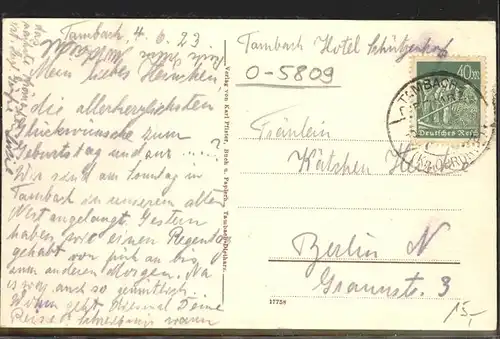 Tambach 4. 6. 23.
Mein liebes Hennchen,
die allerherzlichsten
Glückwünsche zum
Geburtstag und zur ....?
Wir sind am Sonntag in
Tambach in unserem alten
Wert angelangt. Gestern
haben wir einen Regentag
gehabt von früh an bis
zum anderen Morgen. Na
es war auch so gemütlich.
Wann geht diesmal Deine
Reise?
wann
Verlag von Karl Pfister, Buch u. Papierh., Tambach-Dietharz.
17758
Tambach Hotel Schützenhof
O-5809
40 M
Deutsches Reich
TAMBACH
Fräulein
Kätchen
Berlin N
Graunstr. 3
15,-